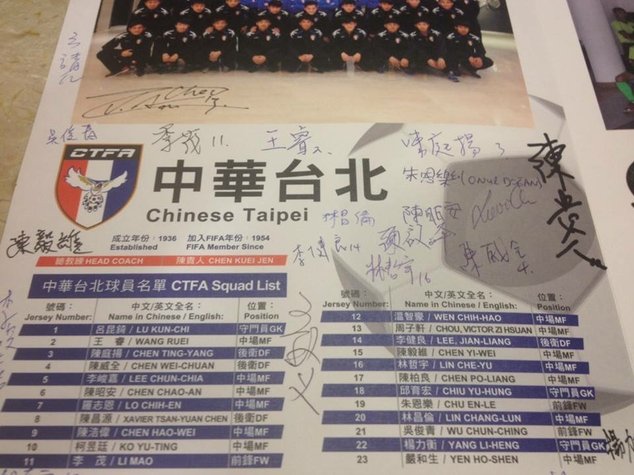 李茂 11.
王睿 2.
陳庭揚 3
CTFA
中華台北
Chinese Taipei
朱恩樂
陳昭安
林昌倫
李健良 14
林哲宇 16
陳威全 4
陳毅維
成立年份:1936 加入FIFA年份:1954
Established FIFA Member Since
總教練 HEAD COACH 陳貴人 CHEN KUEI JEN
中華台北球員名單 CTFA Squad List
號碼: 中文/英文全名: 位置:
Jersey Number: Name in Chinese / English: Position
1 呂昆錡 / LU KUN-CHI 守門員GK
2 王 睿 / WANG RUEI 中場MF
3 陳庭揚 / CHEN TING-YANG 後衛DF
4 陳威全 / CHEN WEI-CHUAN 後衛DF
5 李峻嘉 / LEE CHUN-CHIA 中場MF
6 陳昭安 / CHEN CHAO-AN 中場MF
7 羅志恩 / LO CHIH-EN 中場MF
8 陳昌源 / XAVIER TSAN-YUAN CHEN 後衛DF
9 陳浩偉 / CHEN HAO-WEI 中場MF
10 柯昱廷 / KO YU-TING 中場MF
11 李 茂 / LI MAO 前鋒FW
號碼: 中文/英文全名: 位置:
Jersey Number: Name in Chinese / English: Position
12 溫智豪 / WEN CHIH-HAO 中場MF
13 周子軒 / CHOU, VICTOR ZI HSUAN 中場MF
14 李健良 / LEE, JIAN-LIANG 後衛DF
15 陳毅維 / CHEN YI-WEI 中場MF
16 林哲宇 / LIN CHE-YU 中場MF
17 陳柏良 / CHEN PO-LIANG 中場MF
18 邱育宏 / CHIU YU-HUNG 守門員GK
19 朱恩樂 / CHU EN-LE 前鋒FW
20 林昌倫 / LIN CHANG-LUN 中場MF
21 吳俊青 / WU CHUN-CHING 中場MF
22 楊力衡 / YANG LI-HENG 守門員GK
23 嚴和生 / YEN HO-SHEN 中場MF